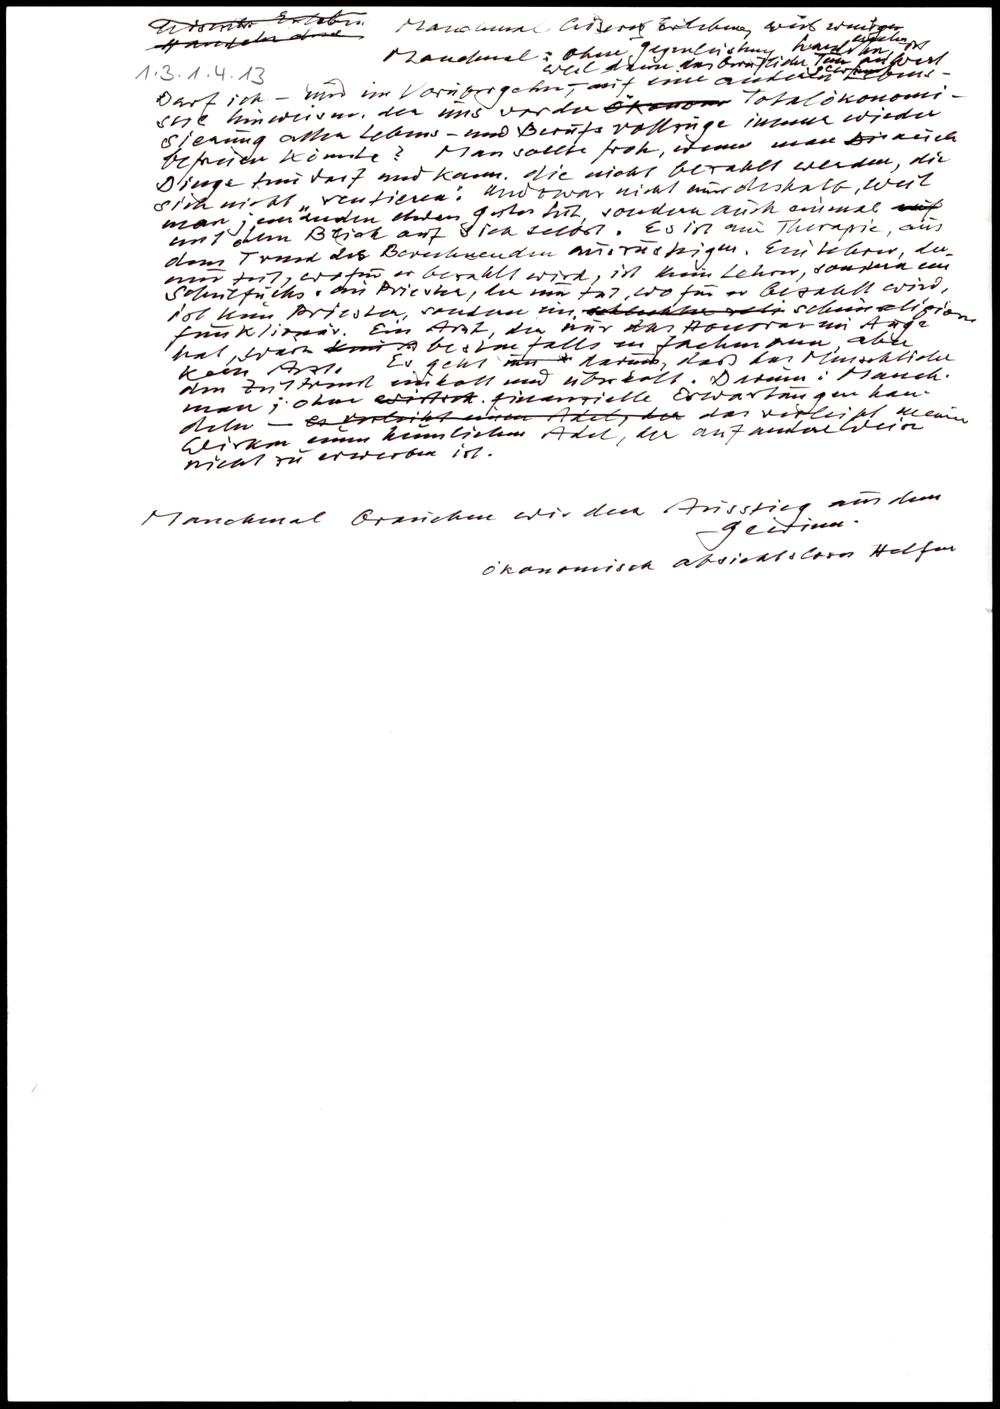 Manchmal
Manchmal: ohne Gegenleistung
weil dann das berufliche Tun an Wert
1.3.1.4.13
Darf ich – und im Vorübergehn, auf eine andere Lebens-
hinweisen, der uns vor der Totalökonomi-
sierung aller Lebens- und Berufsvollzüge immer wieder
befreien könnte? Man sollte froh, wenn man auch
Dinge tun darf und kann, die nicht bezahlt werden, die
sich nicht „rentieren". Und zwar nicht nur deshalb, weil
man jemanden etwas gutes tut, sondern auch einmal
mit dem Blick auf sich selbst. Es ist eine Therapie, aus
dem Trend des Berechnenden auszusteigen. Ein Lehrer, der
nur tut, wofür er bezahlt wird, ist kein Lehrer, sondern ein
Schulfuchs. ein Priester, der nur tut, wofür er bezahlt wird,
ist kein Priester, sondern ein
funktionär. Ein Arzt, der nur das Honorar im Auge
hat, wäre bestenfalls ein Fachmann, aber
kein Arzt. Es geht darum, daß das Menschliche
den Zustand einholt und überholt. Darum: Manch-
mal; ohne finanzielle Erwartungen han-
deln – das verleiht
Wirken einen heimlichen Adel, der auf andere Weise
nicht zu erwerben ist.
Manchmal brauchen wir den Ausstieg aus dem
Gewinn.
ökonomisch absichtsloses Helfen